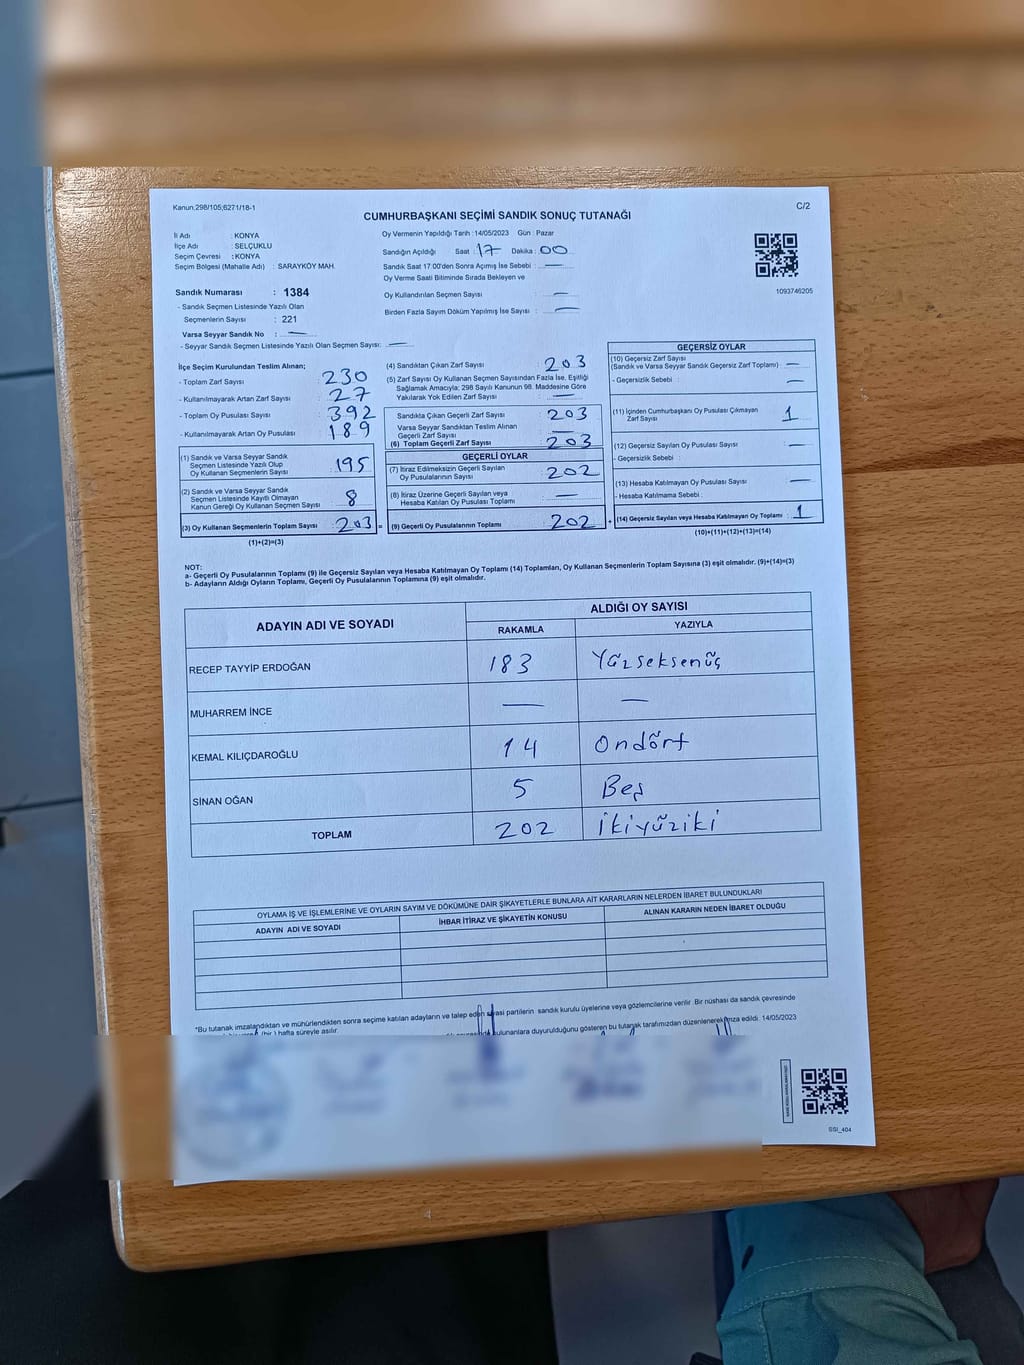 Kanun;298/105;6271/18-1
C/2
CUMHURBAŞKANI SEÇİMİ SANDIK SONUÇ TUTANAĞI
İl Adı : KONYA
İlçe Adı : SELÇUKLU
Seçim Çevresi : KONYA
Seçim Bölgesi (Mahalle Adı) : SARAYKÖY MAH.
Oy Vermenin Yapıldığı Tarih :14/05/2023 Gün : Pazar
Sandığın Açıldığı Saat : 17 Dakika : 00
Sandık Saat 17:00'den Sonra Açımış İse Sebebi : —
Oy Verme Saati Bitiminde Sırada Bekleyen ve
Oy Kullandırılan Seçmen Sayısı : —
Birden Fazla Sayım Döküm Yapılmış İse Sayısı : —
1093746205
Sandık Numarası : 1384
- Sandık Seçmen Listesinde Yazılı Olan
Seçmenlerin Sayısı : 221
Varsa Seyyar Sandık No : —
- Seyyar Sandık Seçmen Listesinde Yazılı Olan Seçmen Sayısı: —
İlçe Seçim Kurulundan Teslim Alınan;
- Toplam Zarf Sayısı 230
- Kullanılmayarak Artan Zarf Sayısı 27
- Toplam Oy Pusulası Sayısı 392
- Kullanılmayarak Artan Oy Pusulası 189
(1) Sandık ve Varsa Seyyar Sandık
Seçmen Listesinde Yazılı Olup
Oy Kullanan Seçmenlerin Sayısı 195
(2) Sandık ve Varsa Seyyar Sandık
Seçmen Listesinde Kayıtlı Olmayan
Kanun Gereği Oy Kullanan Seçmen Sayısı 8
(3) Oy Kullanan Seçmenlerin Toplam Sayısı 203 =
(1)+(2)=(3)
(4) Sandıktan Çıkan Zarf Sayısı 203
(5) Zarf Sayısı Oy Kullanan Seçmen Sayısından Fazla İse, Eşitliği
Sağlamak Amacıyla; 298 Sayılı Kanunun 98. Maddesine Göre
Yakılarak Yok Edilen Zarf Sayısı —
Sandıkta Çıkan Geçerli Zarf Sayısı 203
Varsa Seyyar Sandıktan Teslim Alınan
Geçerli Zarf Sayısı —
(6) Toplam Geçerli Zarf Sayısı 203
GEÇERLİ OYLAR
(7) İtiraz Edilmeksizin Geçerli Sayılan
Oy Pusulasının Sayısı 202
(8) İtiraz Üzerine Geçerli Sayılan veya
Hesaba Katılan Oy Pusulası Toplamı —
(9) Geçerli Oy Pusulalarının Toplamı 202 +
GEÇERSİZ OYLAR
(10) Geçersiz Zarf Sayısı
(Sandık ve Varsa Seyyar Sandık Geçersiz Zarf Toplamı) —
- Geçersizlik Sebebi : —
(11) İçinden Cumhurbaşkanı Oy Pusulası Çıkmayan
Zarf Sayısı 1
(12) Geçersiz Sayılan Oy Pusulası Sayısı —
- Geçersizlik Sebebi :
(13) Hesaba Katılmayan Oy Pusulası Sayısı —
- Hesaba Katılmama Sebebi :
(14) Geçersiz Sayılan veya Hesaba Katılmayan Oy Toplamı 1
(10)+(11)+(12)+(13)=(14)
NOT:
a- Geçerli Oy Pusulalarının Toplamı (9) ile Geçersiz Sayılan veya Hesaba Katılmayan Oy Toplamı (14) Toplamları, Oy Kullanan Seçmenlerin Toplam Sayısına (3) eşit olmalıdır. (9)+(14)=(3)
b- Adayların Aldığı Oyların Toplamı, Geçerli Oy Pusulalarının Toplamına (9) eşit olmalıdır.
ADAYIN ADI VE SOYADI
ALDIĞI OY SAYISI
RAKAMLA YAZIYLA
RECEP TAYYİP ERDOĞAN 183 Yüzseksenüç
MUHARREM İNCE — —
KEMAL KILIÇDAROĞLU 14 Ondört
SİNAN OĞAN 5 Beş
TOPLAM 202 İkiyüziki
OYLAMA İŞ VE İŞLEMLERİNE VE OYLARIN SAYIM VE DÖKÜMÜNE DAİR ŞİKAYETLERLE BUNLARA AİT KARARLARIN NELERDEN İBARET BULUNDUKLARI
ADAYIN ADI VE SOYADI İHBAR İTİRAZ VE ŞİKAYETİN KONUSU ALINAN KARARIN NEDEN İBARET OLDUĞU
*Bu tutanak imzalandıktan ve mühürlendikten sonra seçime katılan adayların ve talep eden siyasi partilerin sandık kurulu üyelerine veya gözlemcilerine verilir. Bir nüshası da sandık çevresinde
(bir) hafta süreyle asılır. bulunanlara duyurulduğunu gösteren bu tutanak tarafımızdan düzenlenerek imza edildi. 14/05/2023
SSI_404